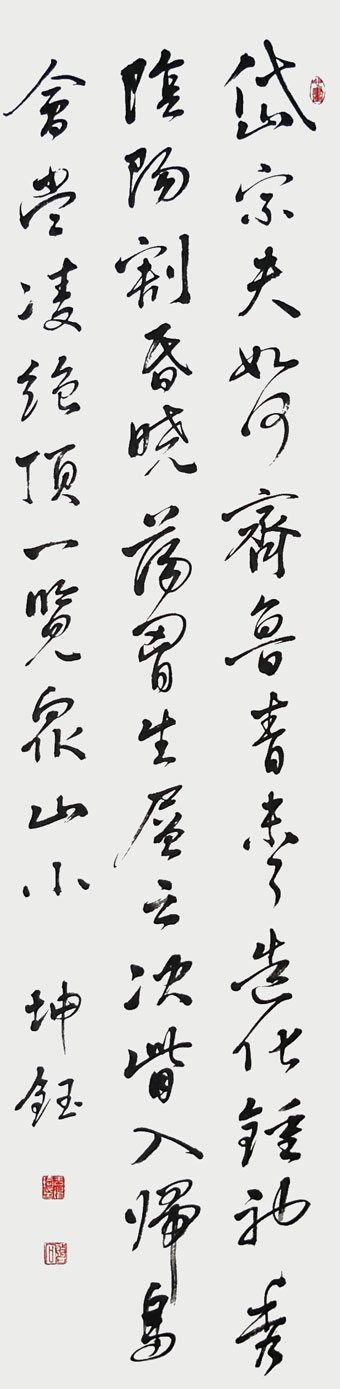 岱宗夫如何齊魯青未了造化鍾神秀
陰陽割昏曉蕩胷生層云决眥入歸鳥
會當凌絶頂一覽衆山小 坤鈺